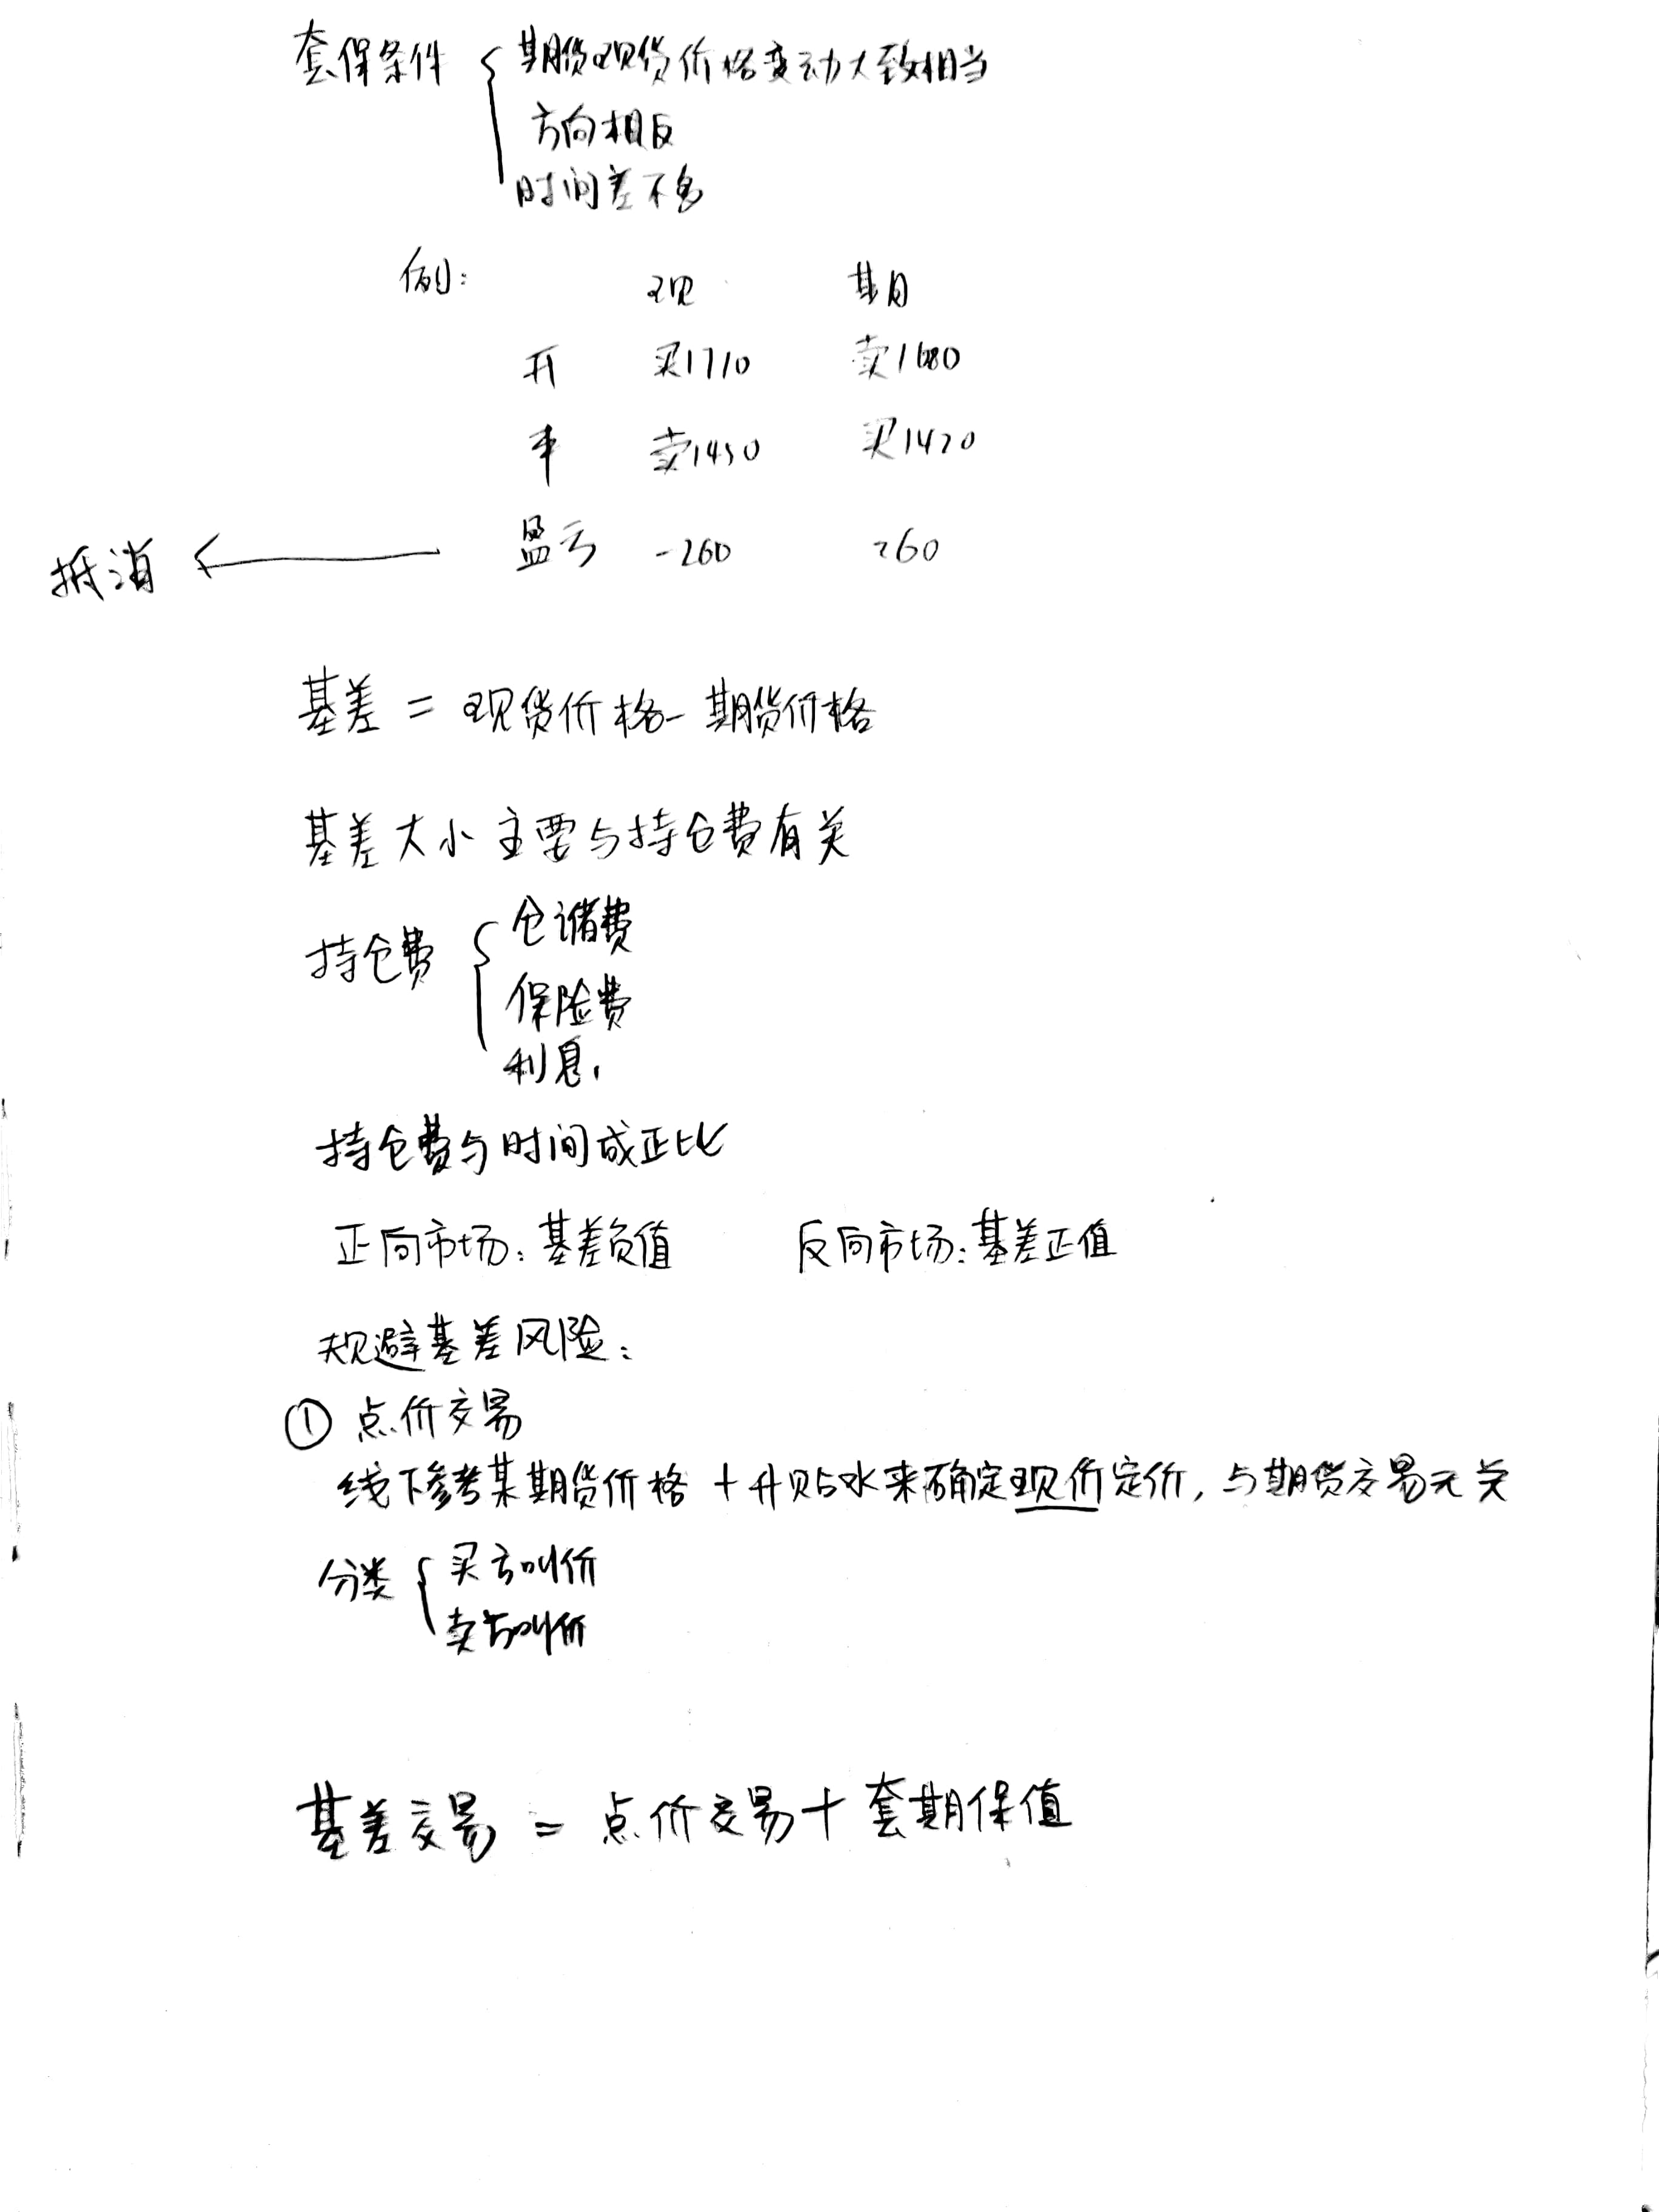 套保条件 { 期货现货价格变动大致相当
方向相反
时间差不多
例:
现 期
开 买1710 卖1680
平 卖1450 买1420
抵消 ← 盈亏 -260 260
基差 = 现货价格 - 期货价格
基差大小主要与持仓费有关
持仓费 { 仓储费
保险费
利息
持仓费与时间成正比
正向市场: 基差负值 反向市场: 基差正值
规避基差风险:
① 点价交易
线下参考某期货价格 + 升贴水来确定现价定价, 与期货交易无关
分类 { 买方叫价
卖方叫价
基差交易 = 点价交易 + 套期保值